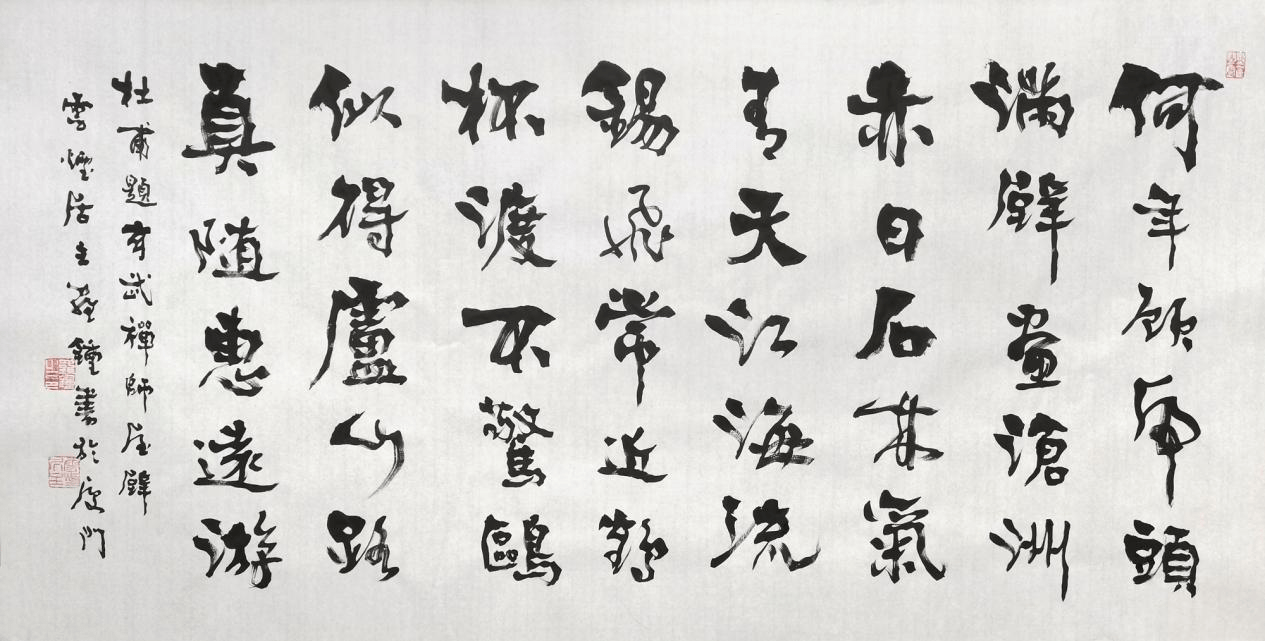 何年顧虎頭
滿壁畫滄洲
赤日石林氣
青天江海流
錫飛常近鶴
杯渡不驚鷗
似得廬山路
真隨惠遠遊
杜甫題玄武禪師屋壁
雲煙居主 鍾書於廈門